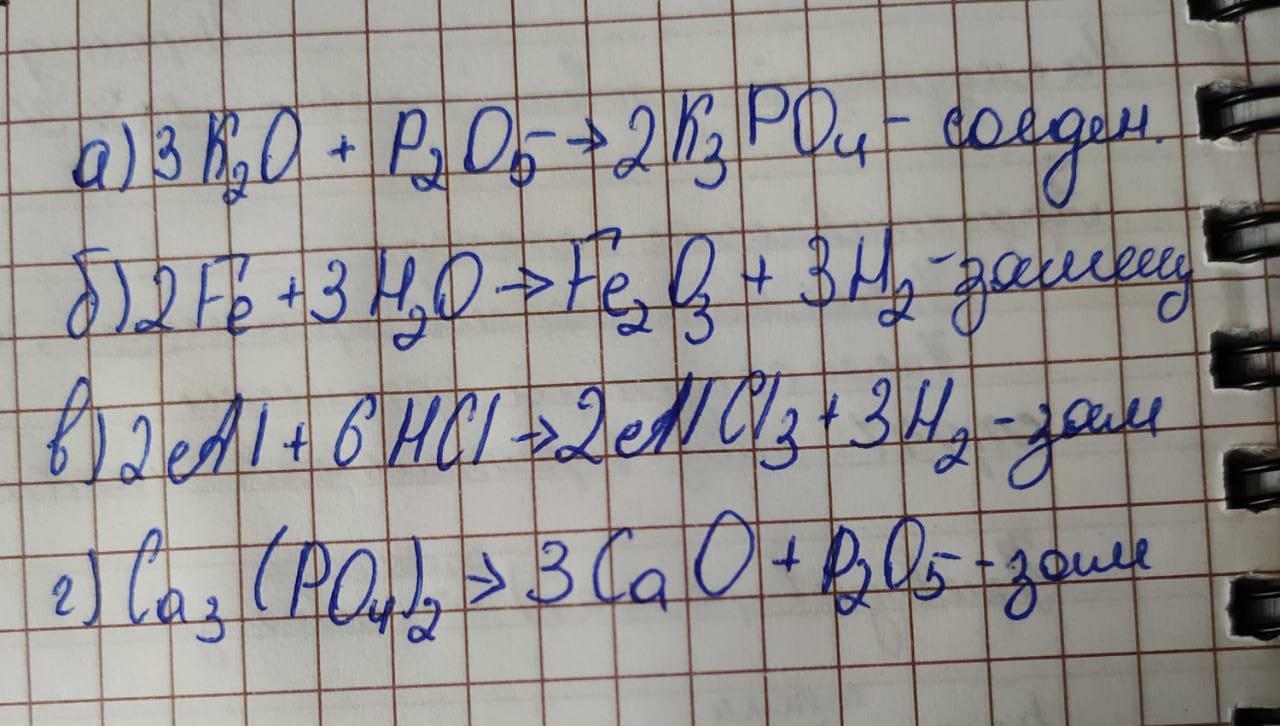 а) 3K₂O + P₂O₅ → 2K₃PO₄ - соеден.
б) 2Fe + 3H₂O → Fe₂O₃ + 3H₂ - замещ
в) 2Al + 6HCl → 2AlCl₃ + 3H₂ - зам
г) Ca₃(PO₄)₂ → 3CaO + P₂O₅ - зам